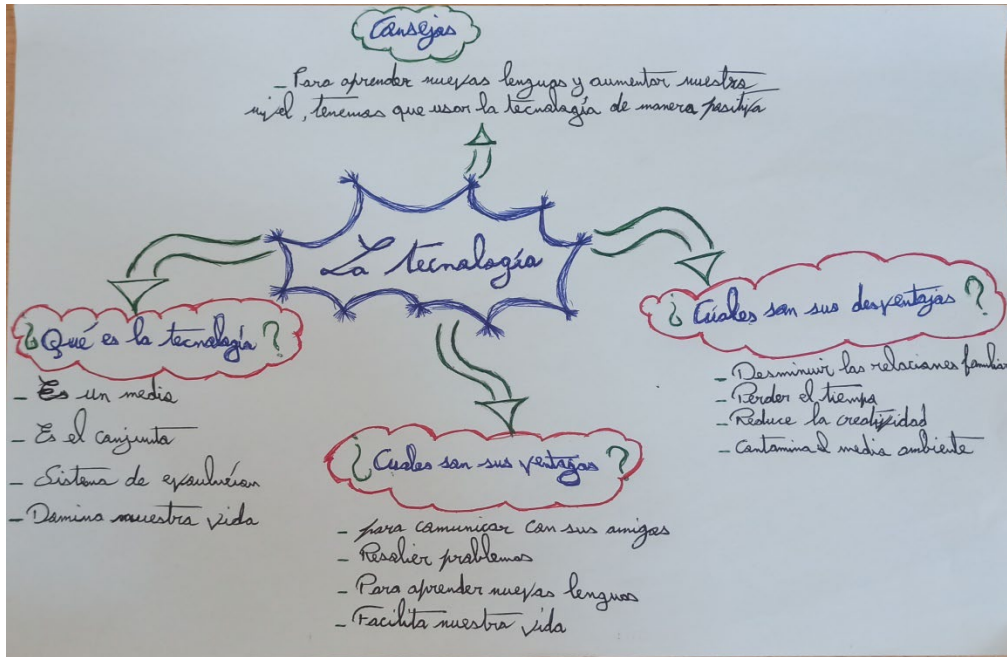 Consejos
- Para aprender nuevas lenguas y aumentar nuestra
nivel, tenemos que usar la tecnología de manera positiva
La tecnología
¿Qué es la tecnología?
- Es un medio
- Es el conjunto
- Sistema de evoulución
- Domina nuestra vida
¿Cuales son sus ventajas?
- para comunicar con sus amigos
- Resolier problemas
- Para aprender nuevas lenguas
- Facilita nuestra vida
¿Cúales son sus desventajas?
- Desminuir las relaciones familiar
- Perder el tiempo
- Reduce la creatividad
- Contamina el medio ambiente